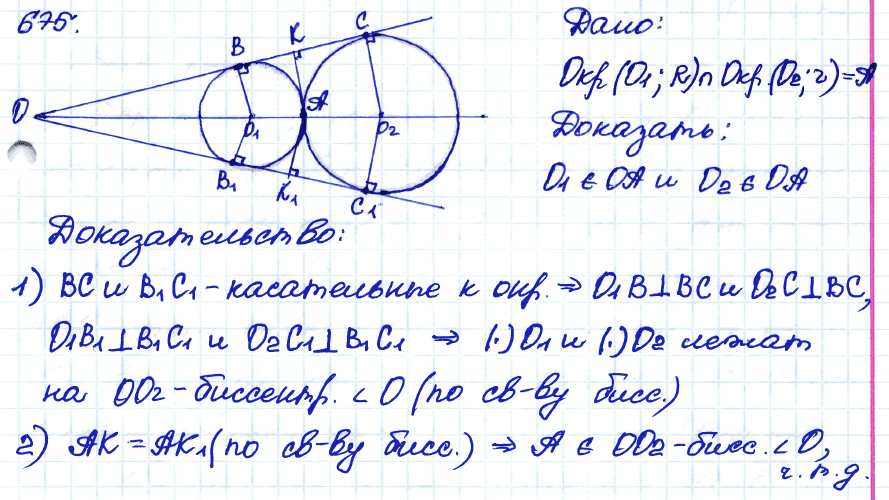 675.
Дано:
Окр.(O₁; R)∩Окр.(O₂; r)=A
Доказать:
O₁ ∈ OA и O₂ ∈ OA
O
B
K
C
A
O₁
O₂
B₁
K₁
C₁
Доказательство:
1) BC и B₁C₁ - касательные к окр. ⇒ O₁B⊥BC и O₂C⊥BC,
O₁B₁⊥B₁C₁ и O₂C₁⊥B₁C₁ ⇒ (·)O₁ и (·)O₂ лежат
на OO₂ - биссектр. ∠O (по св-ву бисс.)
2) AK = AK₁ (по св-ву бисс.) ⇒ A ∈ OO₂ - бисс. ∠O,
ч.т.д.